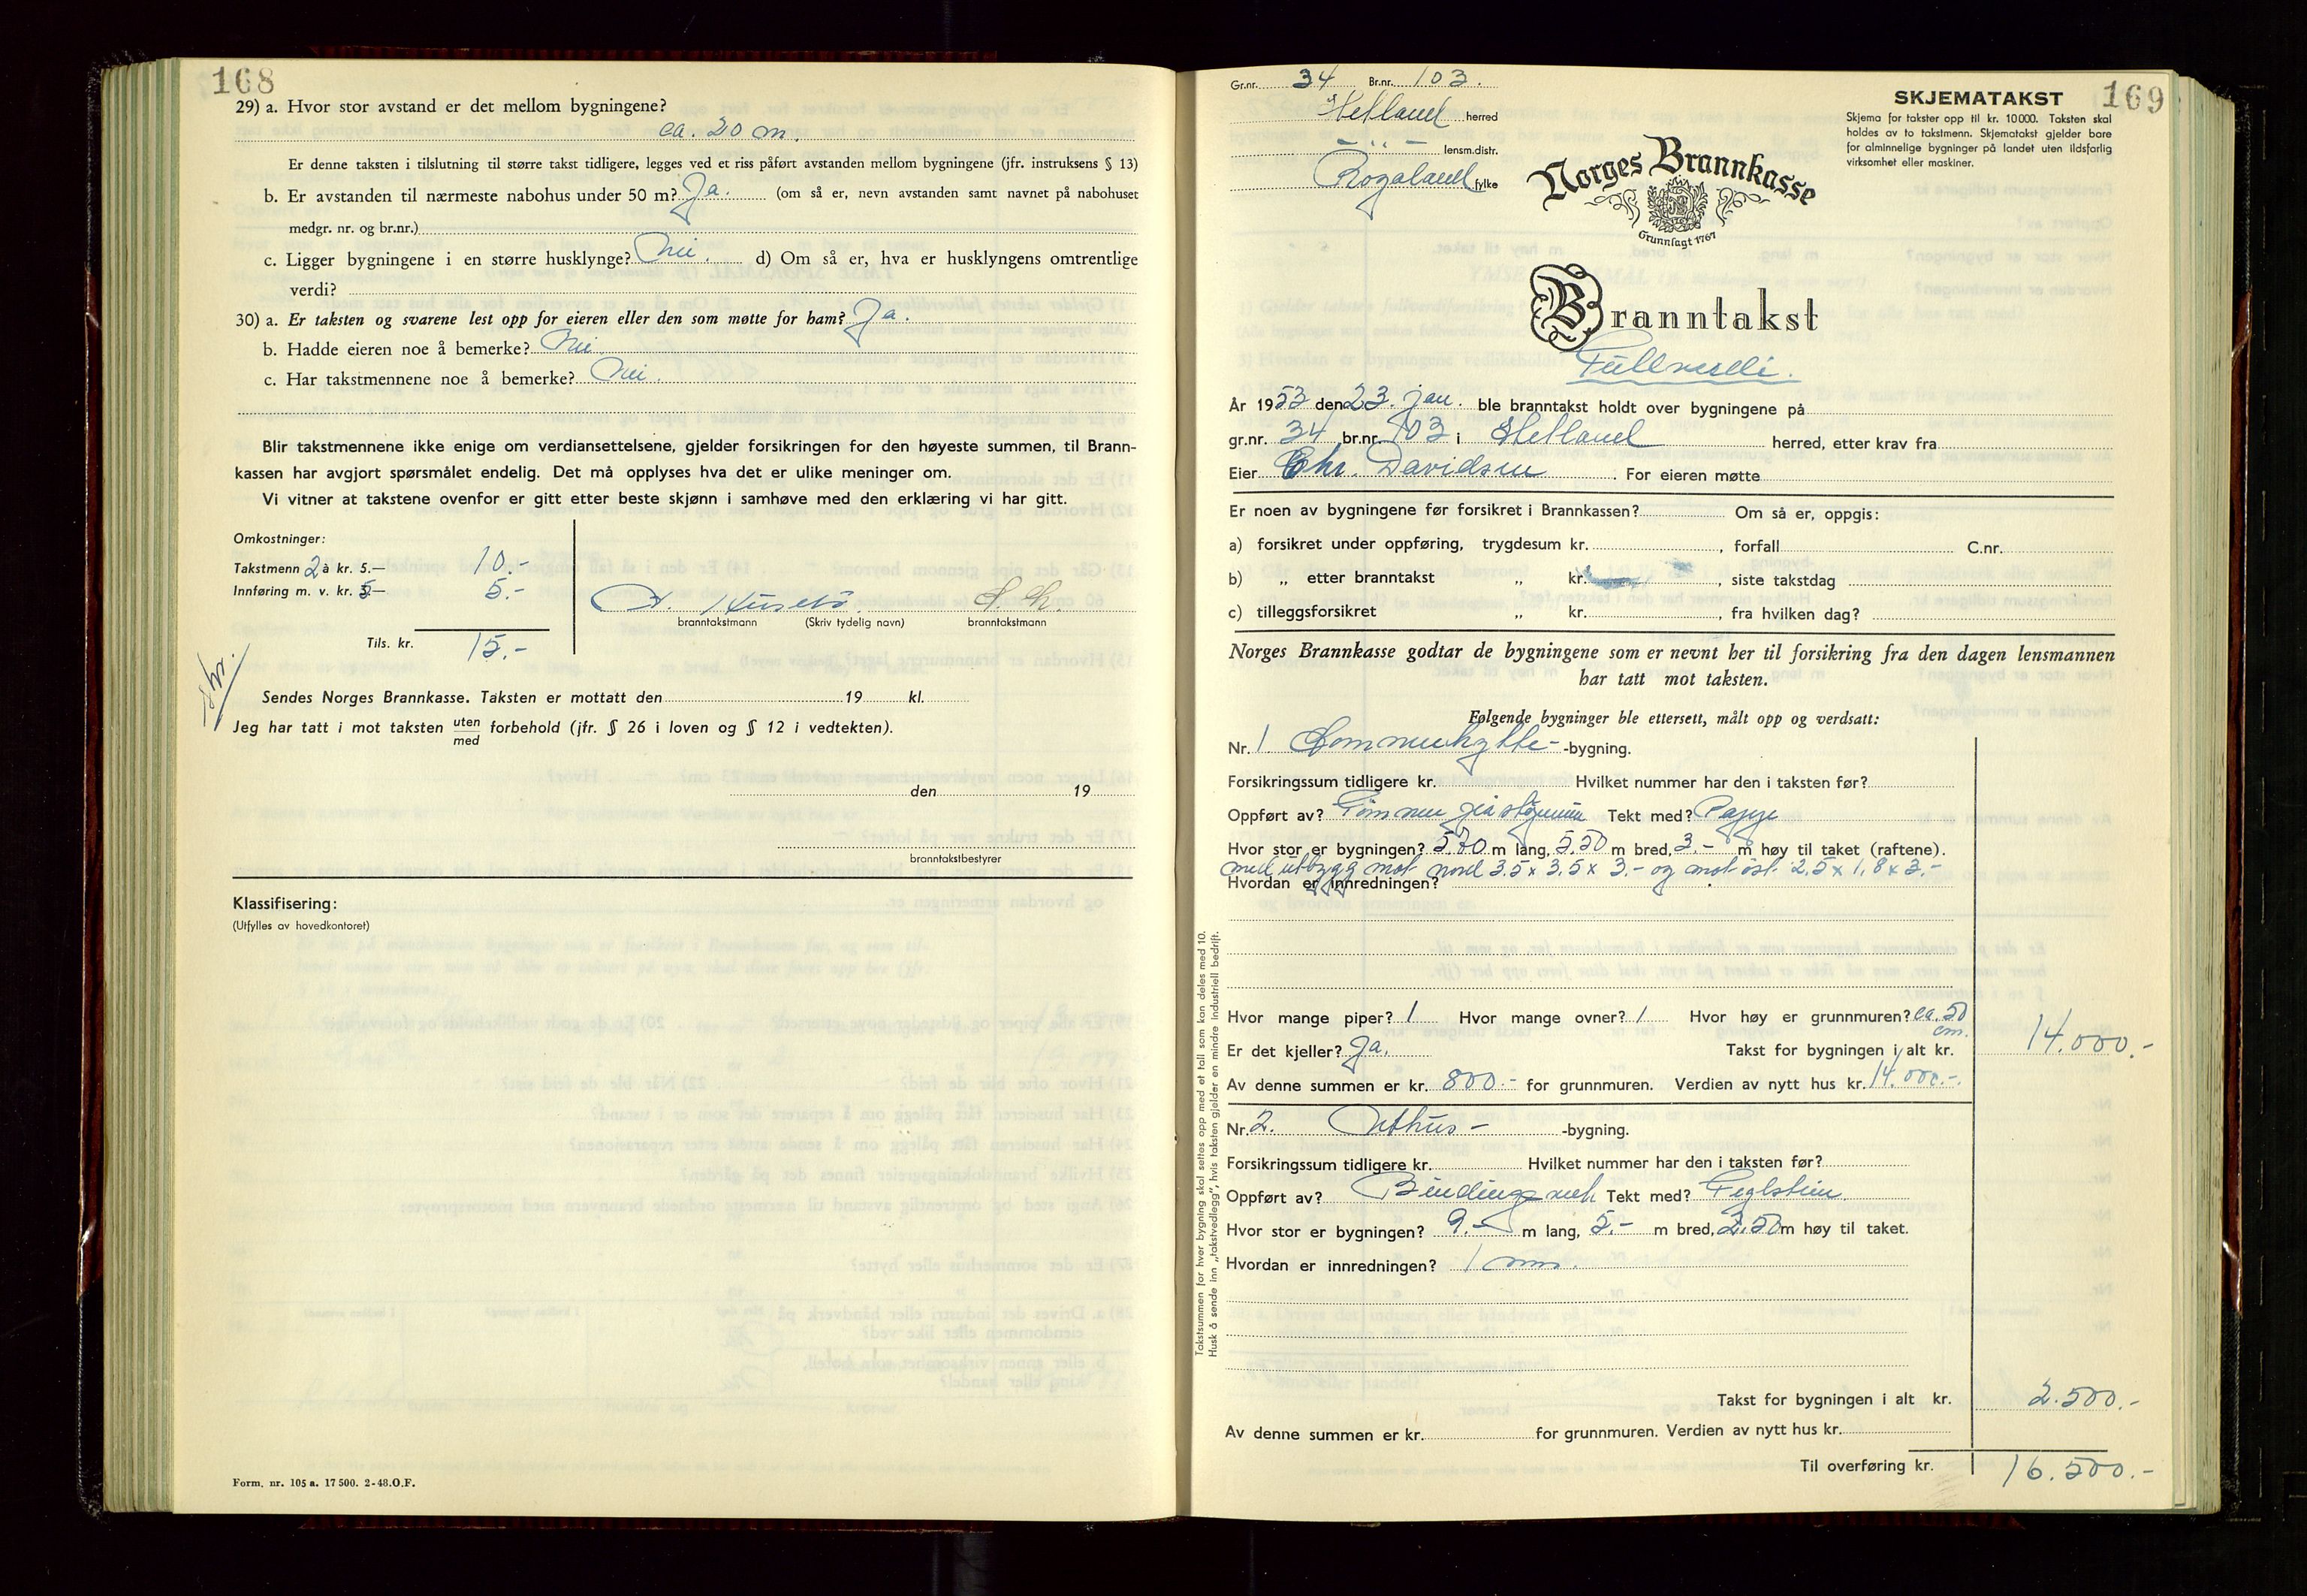 168
29) a. Hvor stor avstand er det mellom bygningene?
ca. 20 m.
Er denne taksten i tilslutning til større takst tidligere, legges ved et riss påført avstanden mellom bygningene (jfr. instruksens § 13)
b. Er avstanden til nærmeste nabohus under 50 m? Ja. (om så er, nevn avstanden samt navnet på nabohuset
medgr. nr. og br.nr.)
c. Ligger bygningene i en større husklynge? Nei. d) Om så er, hva er husklyngens omtrentlige
verdi?
30) a. Er taksten og svarene lest opp for eieren eller den som møtte for ham? Ja.
b. Hadde eieren noe å bemerke? Nei
c. Har takstmennene noe å bemerke? Nei.
Blir takstmennene ikke enige om verdiansettelsene, gjelder forsikringen for den høyeste summen, til Brann-
kassen har avgjort spørsmålet endelig. Det må opplyses hva det er ulike meninger om.
Vi vitner at takstene ovenfor er gitt etter beste skjønn i samhøve med den erklæring vi har gitt.
Omkostninger:
Takstmenn 2 à kr. 5.— 10.-
Innføring m. v. kr. 5— 5.-
branntakstmann (Skriv tydelig navn) branntakstmann
Tils. kr. 15.-
Sendes Norges Brannkasse. Taksten er mottatt den 19 kl.
Jeg har tatt i mot taksten uten
med forbehold (jfr. § 26 i loven og § 12 i vedtekten).
den 19
branntakstbestyrer
Klassifisering:
(Utfylles av hovedkontoret)
Form. nr. 105 a. 17 500. 2-48.O.F.
Gr.nr. 34 Br.nr. 103.
Hetland herred
- " - lensm.distr.
Rogaland fylke
SKJEMATAKST 169
Skjema for takster opp til kr. 10000. Taksten skal
holdes av to takstmenn. Skjematakst gjelder bare
for alminnelige bygninger på landet uten ildsfarlig
virksomhet eller maskiner.
Norges Brannkasse
Grunnlagt 1767
Branntakst
Fullverdi.
År 1953 den 23. jan. ble branntakst holdt over bygningene på
gr.nr. 34 br.nr. 103 i Hetland herred, etter krav fra
Eier Chr. Davidsen. For eieren møtte
Er noen av bygningene før forsikret i Brannkassen? Om så er, oppgis:
a) forsikret under oppføring, trygdesum kr. , forfall C.nr.
b) „ etter branntakst „ kr. , siste takstdag
c) tilleggsforsikret „ kr. , fra hvilken dag?
Norges Brannkasse godtar de bygningene som er nevnt her til forsikring fra den dagen lensmannen
har tatt mot taksten.
Følgende bygninger ble ettersett, målt opp og verdsatt:
Nr. 1. Sommerhytte- -bygning.
Forsikringssum tidligere kr. Hvilket nummer har den i taksten før?
Oppført av? Tømmer på støpemur Tekt med? Papp
Hvor stor er bygningen? 5.70 m lang, 5.50 m bred, 3.- m høy til taket (raftene).
med utbygg mot nord 3.5 x 3.5 x 3.- og mot øst 2,5 x 1,8 x 3.-
Hvordan er innredningen?
Hvor mange piper? 1 Hvor mange ovner? 1 Hvor høy er grunnmuren? ca. 50 cm.
Er det kjeller? Ja. Takst for bygningen i alt kr. 14.000.-
Av denne summen er kr. 800.- for grunnmuren. Verdien av nytt hus kr. 14.000.-.
Nr. 2. Uthus- -bygning.
Forsikringssum tidligere kr. Hvilket nummer har den i taksten før?
Oppført av? Bindingsverk Tekt med? Teglstein
Hvor stor er bygningen? 9.- m lang, 5.- m bred, 2.50 m høy til taket.
Hvordan er innredningen? 1 rom.
Takst for bygningen i alt kr. 2.500.-
Av denne summen er kr. for grunnmuren. Verdien av nytt hus kr.
Til overføring kr. 16.500.-
Takstsummen for hver bygning skal settes opp med et tall som kan deles med 10.
Husk å sende inn „takstvedlegg“, hvis taksten gjelder en mindre industriell bedrift.